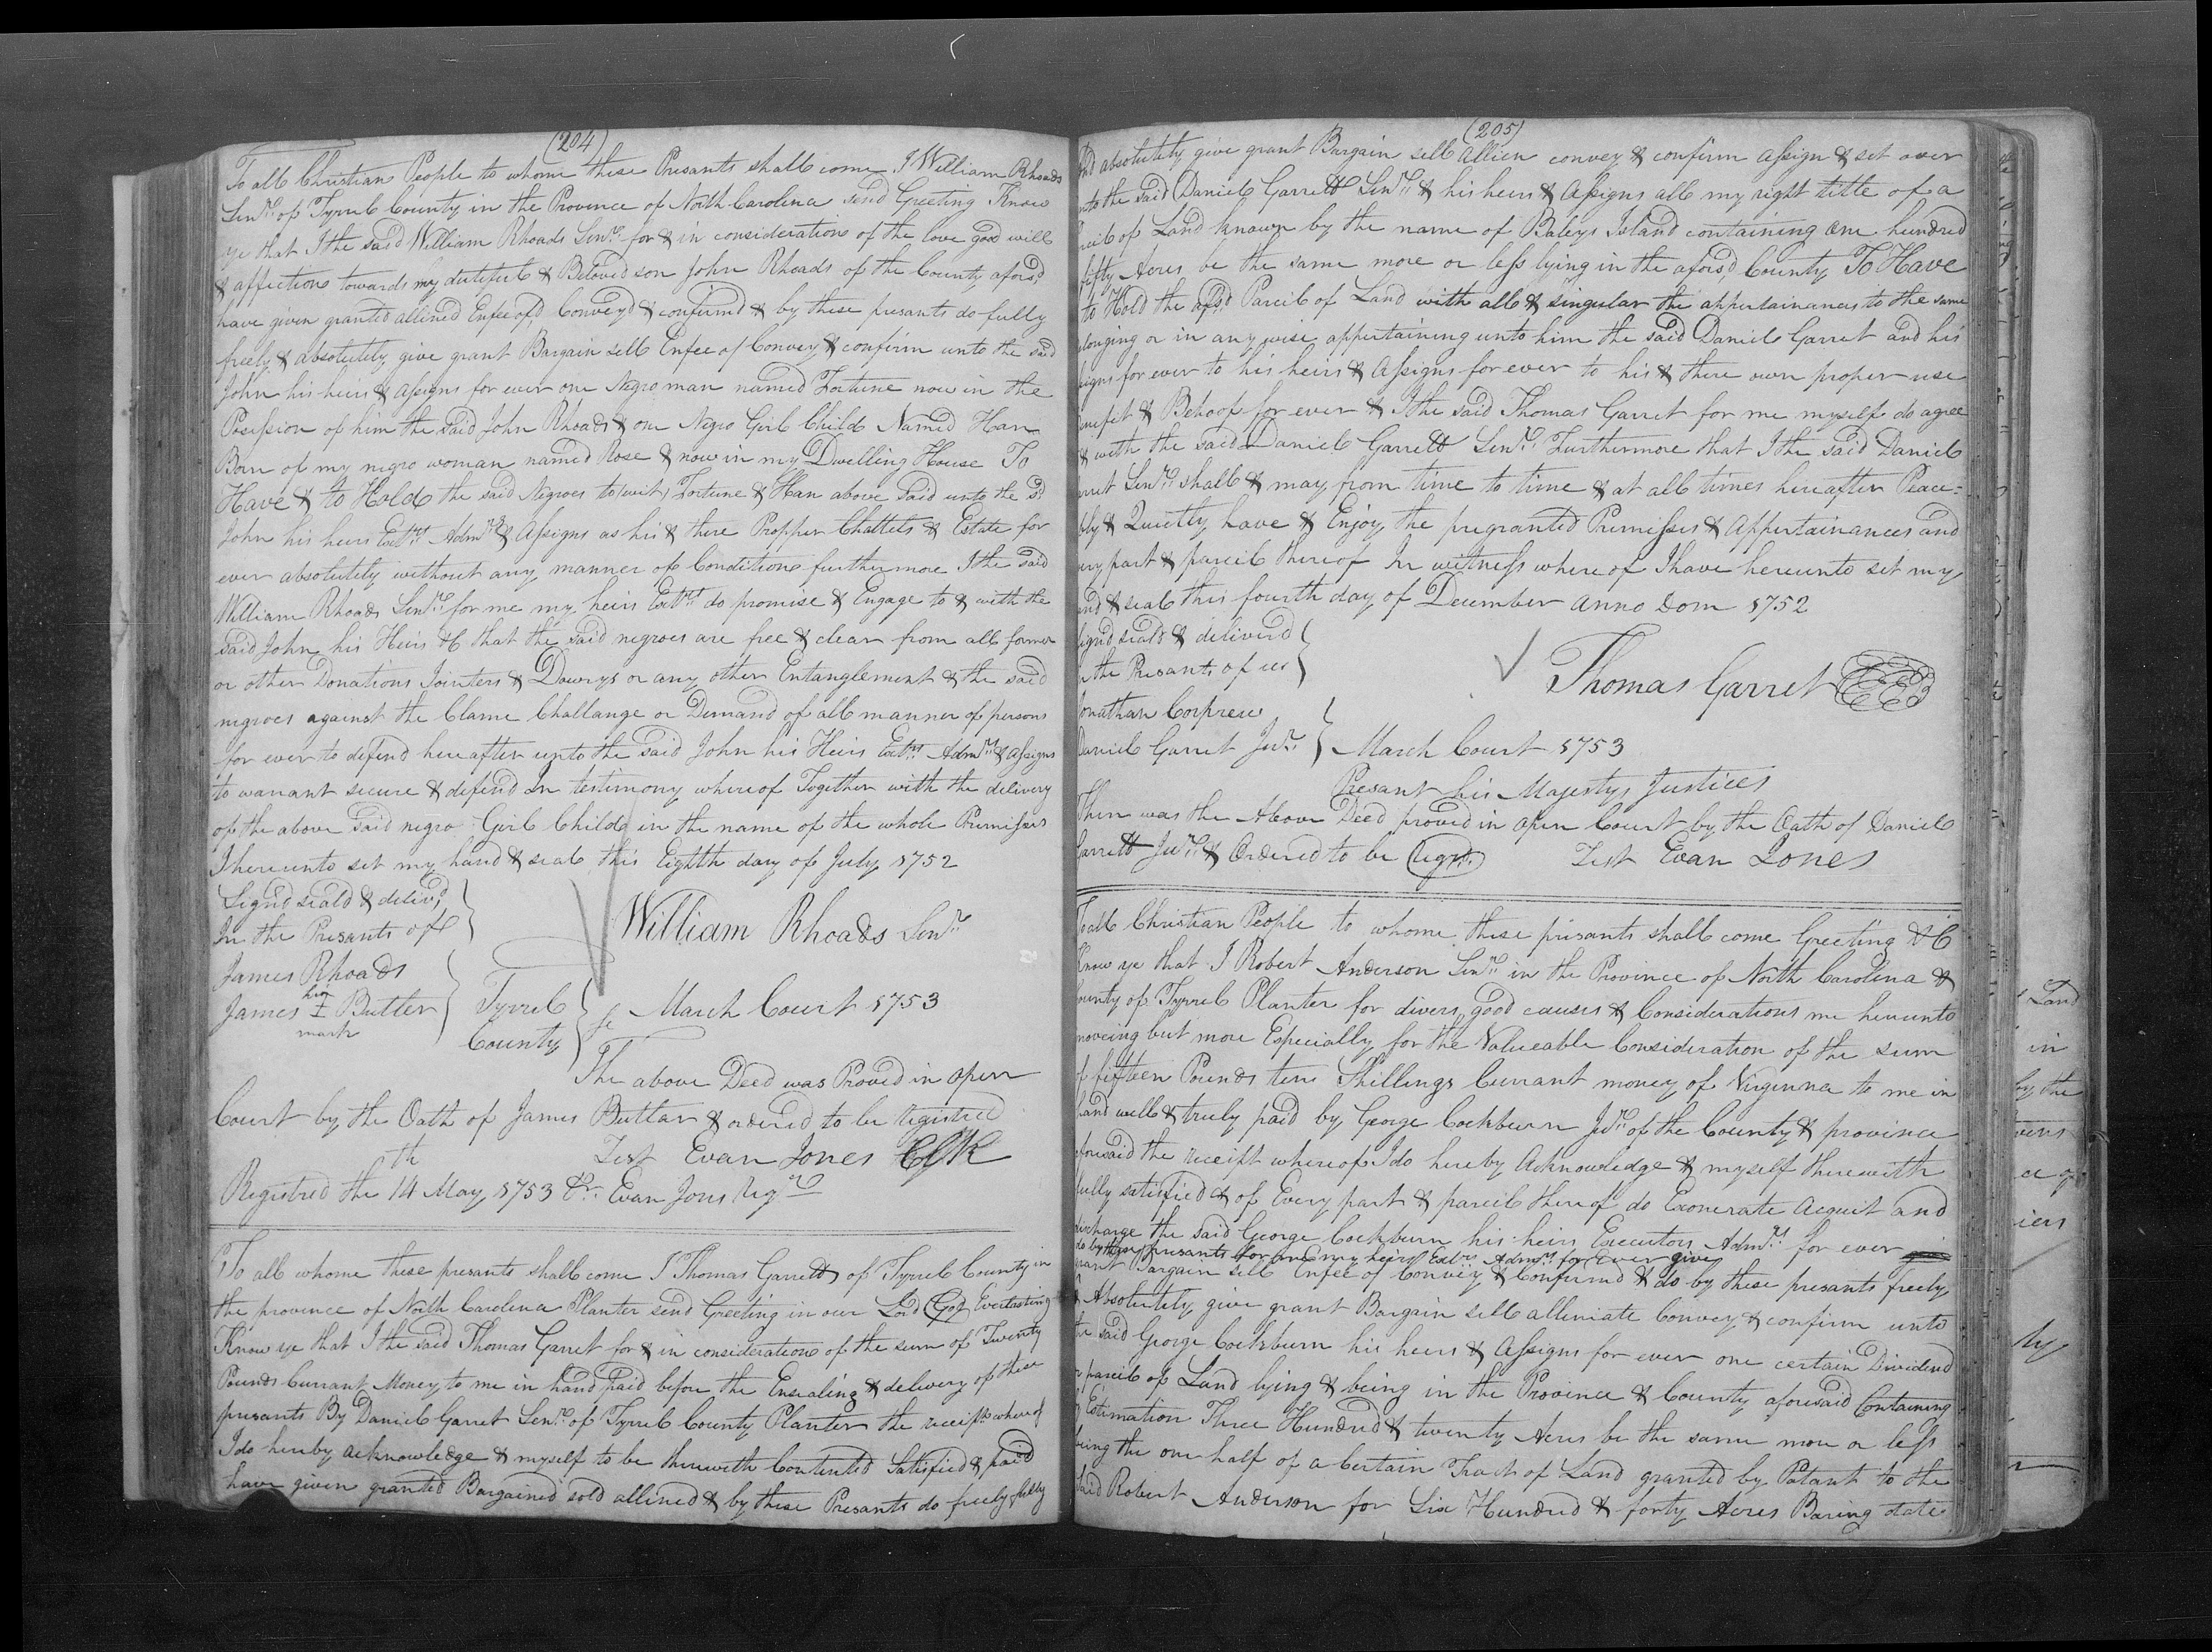 (204)
To all Christian People to whome these Presants shall come I William Rhoads
Senr. of Tyrrel County in the Province of North Carolina send Greeting Know
ye that I the said William Rhoads Senr. for & in consideration of the love good will
& affection towards my dutifull & Beloved son John Rhoads of the County aforsd.
have given granted allined Enfeeofd, Conveyd & confirmd & by these presants do fully
freely & absolutely give grant Bargain sell Enfeeof Convey & confirm unto the said
John his heirs & Assigns for ever one Negro man named Fortune now in the
Possession of him the said John Rhoads & one Negro Girl Child Named Han
Born of my negro woman named Rose & now in my Dwelling House To
Have & to Hold the said Negroes to (wit) Fortune & Han above said unto the sd
John his heirs Exrs. Admrs & Assigns as his & there Propper Chattels & Estate for
ever absolutely without any manner of Condition furthermore I the said
William Rhoads Senr. for me my heirs Exrs. do promise & Engage to & with the
said John his Heirs &C that the said negroes are free & clear from all former
or other Donations Jointers & Dowrys or any other Entanglement & the said
negroes against the Clame Challange or Demand of all manner of persons
for ever to defend hereafter unto the said John his Heirs Exrs. Admrs. & assigns
to warrant secure & defend In testimony whereof Together with the delivery
of the above said negro Girl Child in the name of the whole Premisses
I hereunto set my hand & seal this Eighth day of July 1752
Signd seald & delivd.
In the Presants off
William Rhoads Senr.
James Rhoads
James his I mark Butler
Tyrrel County
March Court 1753
The above Deed was Proved in open
Court by the Oath of James Buttlar & ordered to be registred
Test Evan Jones ClK
Registred the 14th May 1753 Pr. Evan Jons Regr.
To all whome these presants shall come I Thomas Garrett of Tyrrel County in
the province of North Carolina Planter send Greeting in our Lord God Everlasting
Know ye that I the said Thomas Garret for & in consideration of the sum of Twenty
Pounds Currant Money to me in hand Paid before the Ensealing & delivery of these
presants By Daniel Garret Senr. of Tyrrel County Planter the receipt whereof
I do hereby acknowledge & myself to be therewith Contented Satisfied & paid
have given granted Bargained sold allined & by these Presants do freely fully
(205)
and absolutely give grant Bargain sell allien convey & confirm assign & set over
unto the said Daniel Garrett Senr. & his heirs & Assigns all my right title of a
of Land known by the name of Baleys Island containing one hundred
fifty Acres be the same more or less lying in the aforsd, County To Have
to Hold the afsd Parcil of Land with all & singular the appertainences to the same
longing or in any wise appertaining unto him the said Daniel Garret and his
signs for ever to his heirs & Assigns for ever to his & there own proper use
nefit & Behoof for ever & I the said Thomas Garret for me myself do agree
& with the said Daniel Garrett Senr. Furthermore that I the said Daniel
rret Senr. shall & may from time to time & at all times hereafter Peace=
bly & Quiettly have & Enjoy the pregranted Premisses & Appertainances and
ery part & parcil thereof In witness whereof I have hereunto set my
and & seal this fourth day of December anno Dom 1752
signd seald & deliverd
n the Presants of us
Thomas Garret
Jonathan Corprew
Daniel Garret Junr.
March Court 1753
Presant his Majestys Justices
Then was the Above Deed proved in open Court by the Oath of Daniel
Garrett Junr. & Ordered to be Regrd.
Test Evan Jones
To all Christian People to whome these prisants shall come Greeting &C
Know ye that I Robert Anderson Senr. in the Province of North Carolina &
County of Tyrrel Planter for divers good causes & Considerations me hereunto
moveing but more Especially for the Valueable Consideration of the sum
of fifteen Pounds tenn Shillings Currant money of Virginna to me in
hand well & truly paid by George Cockburn Junr. of the County & province
aforesaid the receipt whereof I do hereby Acknowledge & myself therewith
fully satisfied & of Every part & parcil thereof do Exonerate Acquit and
discharge the said George Cockburn his heirs Executors Admrs for ever
do by these presants for me my heirs Exrs. Admrs. for Ever give
grant Bargain sell Enfeeof Convey & Confirmd & do by these presants freely
& Absolutely give grant Bargain sell alleniate Convey & confirm unto
the said George Cockburn his heirs & Assigns for ever one certain Dividend
or parcil of Land lying & being in the Province & County aforesaid Containing
Estimation Three Hundred & twenty Acres be the same more or less
being the one half of a Certain Tract of Land granted by Patant to the
said Robert Anderson for Six Hundred & forty Acres Baring date
Land
in
by the